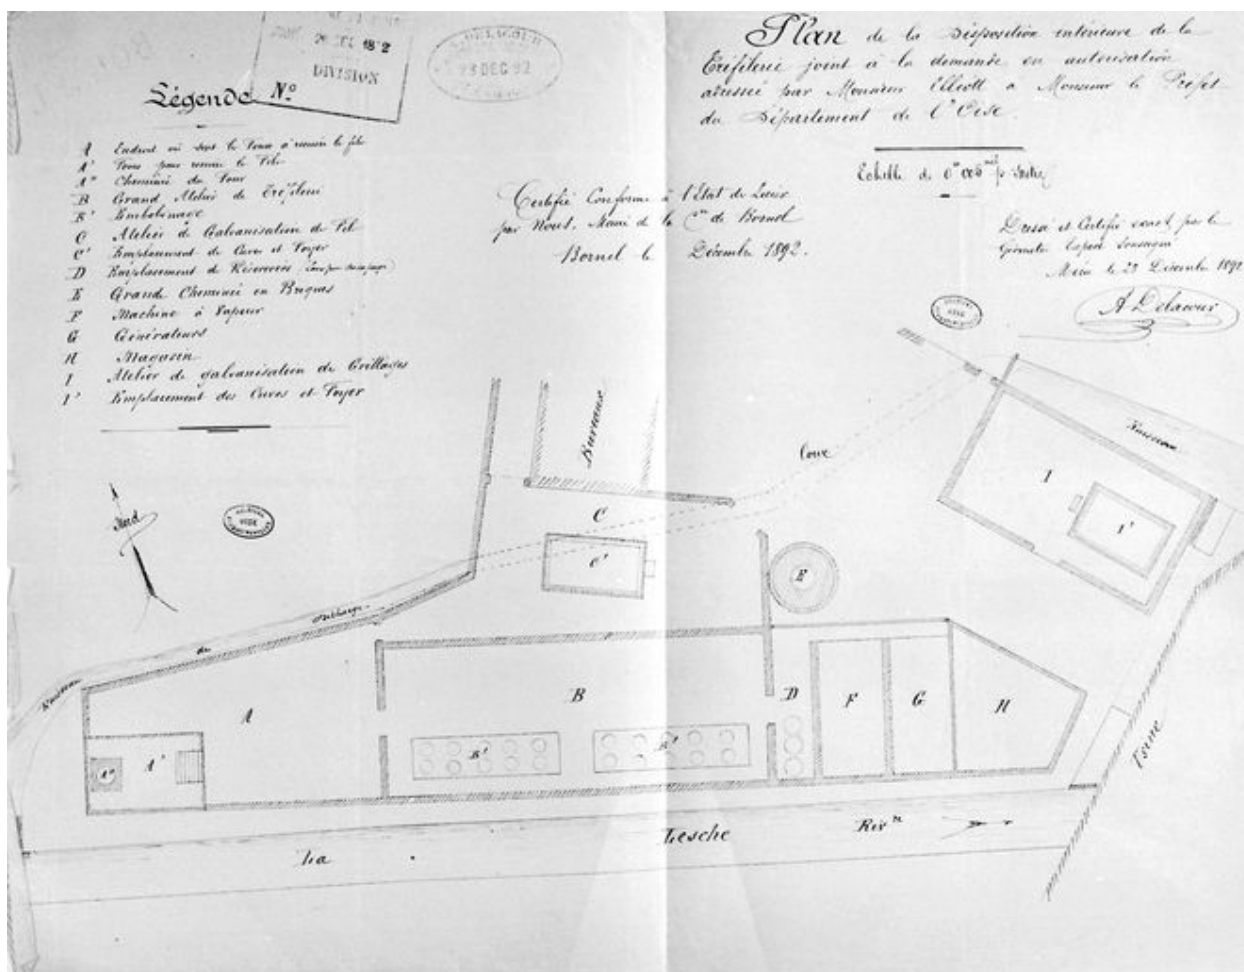 Plan de la Disposition intérieure de la
Tréfilerie joint à la demande en autorisation
adressée par Monsieur Elliott à Monsieur le Préfet
du Département de l'Oise.
Echelle de 0m 005mil p. mètre
DELACOUR
23 DEC 92
DIVISION
Légende
N°
A Endroit où sont le Four à recuire le fil
A' Four pour recuire le Fil
A" Cheminée du Four
B Grand Atelier de Tréfilerie
B' Embobinage
C Atelier de Galvanisation de Fil
C' Emplacement de Cuves et Foyer
D Emplacement de Réservoirs
E Grande Cheminée en Briques
F Machine à Vapeur
G Générateurs
H Magasin
I Atelier de galvanisation de Grillages
I' Emplacement des Cuves et Foyer
Certifié Conforme à l'Etat de Lieux
par Nous, Maire de la Cne de Bornel
Bornel le Décembre 1892.
Dressé et Certifié exact par le
Géomètre Expert soussigné
Méru le 23 Décembre 1892
A Delacour
Nord
Bureaux
Cour
Ruisseau
I
I'
C
C'
E
Ruisseau de décharge
A
A'
A"
B
B'
B'
D
F
G
H
Usine
La Lesche Rivre